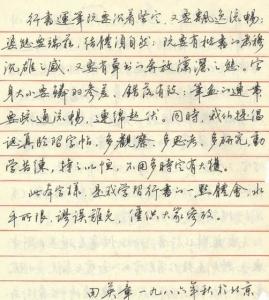 行书运笔既要沉着坚定，又要飘逸流畅；
姿态要端庄，结体须自然；既要有楷书的严谨
沉雄之感，又要有草书的奔放潇洒之态。字
身大小要辅的参差，错落有致，笔画的运带
要疏通流畅，连绵起伏。同时，我们提倡
认真临习字帖，多观察，多思考，多研究，勤
学苦练，持之以恒，不用多时定有大获。
此本字样，是我学习行书的一点体会，水
平所限，谬误难免，仅供大家参改。
田英章一九八六年秋于北京